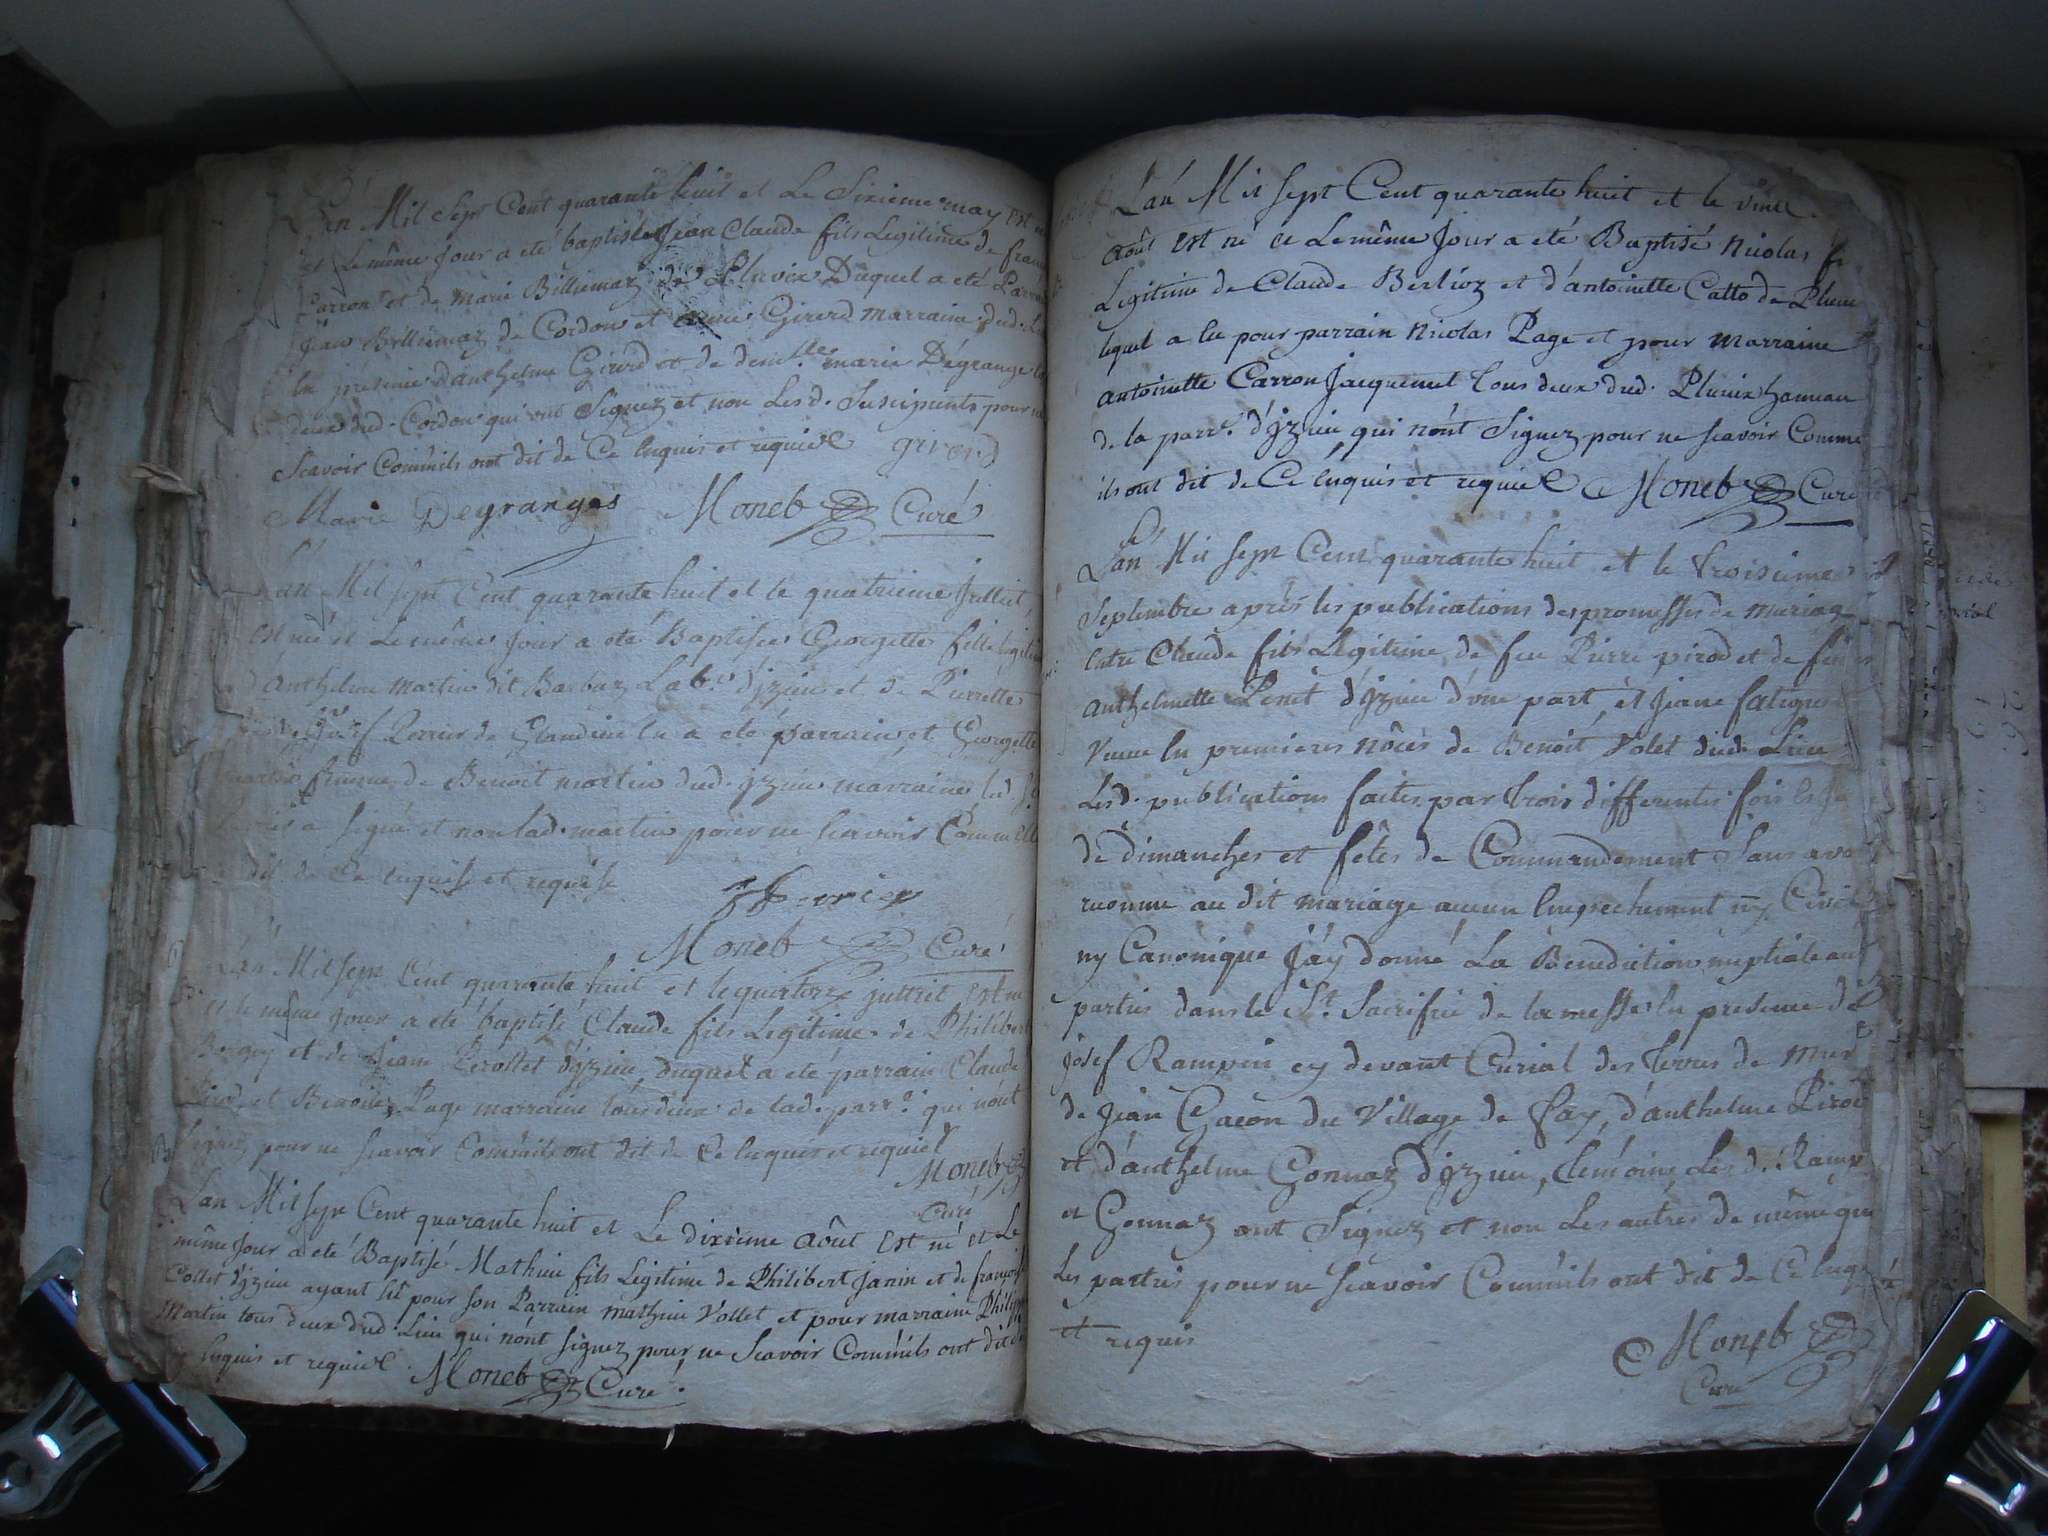 L'an Mil Sept Cent quarante huit et Le Sixieme may est
et Le même Jour a eté baptisé Jean Claude fils Legitime de
Carron et de Marie Billiemaz de Pluvix Duquel a eté
Jean Billiemaz de Cordon et Girerd marraine dud.
En presence d'anthelme Girerd et de dem.lle marie Dégrange
deux dud. Cordon qui ont Signez et non Lesd. Suscipients pour
Scavoir Comm'ils ont dit de Ce Enquis et requis girerd
Marie Degranges Moneb Curé
L'an Mil sept Cent quarante huit et le quatrieme Juilliet
est née et Le même Jour a eté Baptisée Georgette fille
d'Anthelme Martin dit Barbaz Lab.r d'jzieu et de Pierrette
de a eté parrain et Georgette
femme de Benoit martin dud. jzieu marraine
a signé et non lad. martin pour ne Scavoir Comm'elle
dit de Ce enquise et requise
Moneb Curé
L'an Mil sept Cent quarante huit et le quatorze juilliet est
et le même Jour a eté baptisé Claude fils Legitime de Philibert
et de Jeane Perollet d'jzieu, duquel a eté parrain Claude
et Benoite Page marraine tous deux de lad. parr.e qui n'ont
Signez pour ne Scavoir Comm'ils ont dit de Ce enquis et requis
Moneb
Curé
L'an Mil sept Cent quarante huit et Le dixieme Août est né et Le
même Jour a eté Baptisé Mathieu fils Legitime de Philibert Janin et de
Collet d'jzieu ayant Eü pour Son Parrain mathieu Vollet et pour marraine
Martin tous deux dud. Lieu qui n'ont Signez pour ne Scavoir Comm'ils ont dit
Enquis et requis. Moneb Curé.
L'an Mil sept Cent quarante huit et le
Août est né et Le même Jour a eté Baptisé Nicolas
Legitime de Claude Berlioz et d'antoinette Catto de
lequel a Eu pour parrain Nicolas Page et pour Marraine
antoinette Carron Jacquemet tous deux dud. Pluvix hameau
de la parr.e d'jzieu qui n'ont Signez pour ne Scavoir Comme
ils ont dit de Ce Enquis et requis Moneb Curé
L'an Mil sept Cent quarante huit et le troisieme
Septembre après les publications des promesses de Mariage
Entre Claude fils Legitime de feu Pierre pirod et de
anthelmette d'jzieu d'une part, et Jeane
Veuve En premieres nôces de Benoit Volet dud. Lieu
Lesd. publications faites par trois differentes fois
de dimanches et fêtes de Commandement Sans
reconnu au dit mariage aucun Empechement ny Civil
ny Canonique J'ay donné La Benediction nuptiale aux
parties dans le St. Sacrifice de la messe En presence de
Josef Rampin cy devant Curial des terres de
de Jean Gacon du Village de Fay, d'anthelme
et d'anthelme Gonnaz d'jzieu, temoins, Lesd.
et Gonnaz ont Signez et non Les autres de même que
Les parties pour ne Scavoir Comm'ils ont dit de Ce
et requis
Moneb
Curé